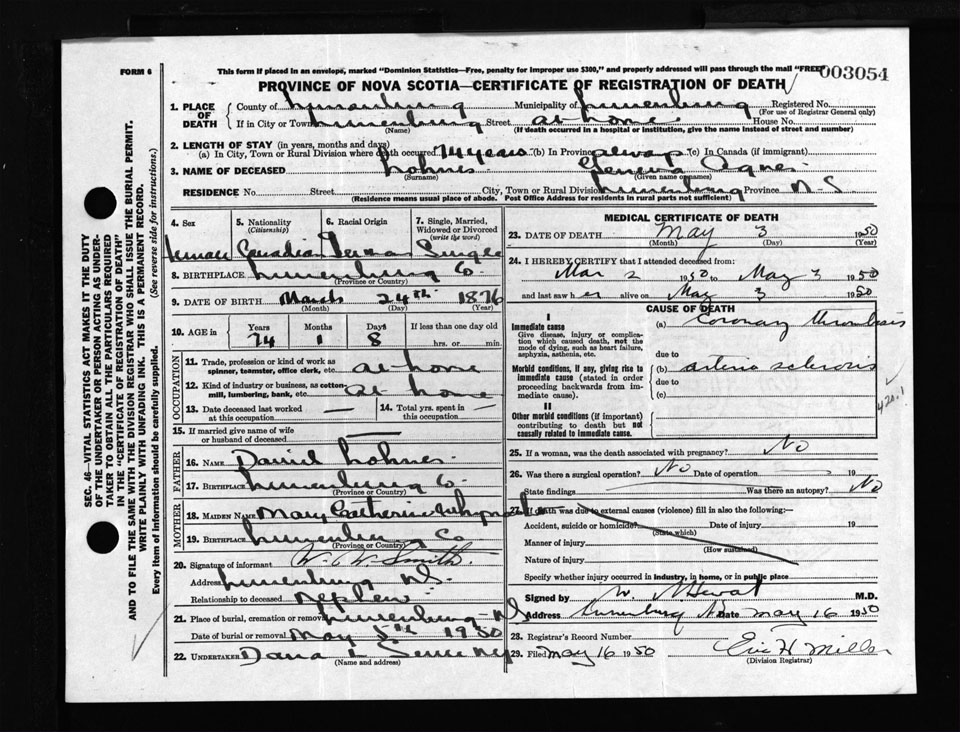 FORM 6
This form if placed in an envelope, marked "Dominion Statistics—Free, penalty for improper use $300," and properly addressed will pass through the mail "FREE"
003054
PROVINCE OF NOVA SCOTIA—CERTIFICATE OF REGISTRATION OF DEATH
1. PLACE OF DEATH County of Lunenburg Municipality of Lunenburg Registered No.
(For use of Registrar General only)
If in City or Town Lunenburg Street at home House No.
(Name) (If death occurred in a hospital or institution, give the name instead of street and number)
2. LENGTH OF STAY (in years, months and days)
(a) In City, Town or Rural Division where death occurred 74 years (b) In Province always (c) In Canada (if immigrant)
3. NAME OF DECEASED Lohnes Geneva Agnes
(Surname) (Given name or names)
RESIDENCE No. Street City, Town or Rural Division Lunenburg Province N-S
(Residence means usual place of abode. Post Office Address for residents in rural parts not sufficient)
4. Sex 5. Nationality (Citizenship) 6. Racial Origin 7. Single, Married, Widowed or Divorced (write the word)
Female Canadian German Single
8. BIRTHPLACE Lunenburg Co.
(Province or Country)
9. DATE OF BIRTH March 24th 1876
(Month) (Day) (Year)
10. AGE in Years Months Days If less than one day old
74 1 8 hrs. or min.
OCCUPATION
11. Trade, profession or kind of work as spinner, teamster, office clerk, etc. at home
12. Kind of industry or business, as cotton-mill, lumbering, bank, etc. at home
13. Date deceased last worked at this occupation —
14. Total yrs. spent in this occupation —
15. If married give name of wife or husband of deceased —
FATHER
16. NAME Daniel Lohnes
17. BIRTHPLACE Lunenburg Co.
(Province or Country)
MOTHER
18. MAIDEN NAME Mary Catherine Whynacht
19. BIRTHPLACE Lunenburg Co.
(Province or Country)
20. Signature of informant W. C. W. Smith
Address Lunenburg N.S.
Relationship to deceased Nephew
21. Place of burial, cremation or removal Lunenburg
Date of burial or removal May 5th 1950
22. UNDERTAKER Dana L
(Name and address)
MEDICAL CERTIFICATE OF DEATH
23. DATE OF DEATH May 3 1950
(Month) (Day) (Year)
24. I HEREBY CERTIFY that I attended deceased from:
Mar 2 1950 to May 3 1950
and last saw her alive on May 3 1950
CAUSE OF DEATH
I
Immediate cause
Give disease, injury or complication which caused death, not the mode of dying, such as heart failure, asphyxia, asthenia, etc.
(a) Coronary thrombosis
due to
Morbid conditions, if any, giving rise to immediate cause (stated in order proceeding backwards from immediate cause)
(b) arterio sclerosis
due to
(c)
420.1
II
Other morbid conditions (if important) contributing to death but not causally related to immediate cause.
25. If a woman, was the death associated with pregnancy? No
26. Was there a surgical operation? No Date of operation 19
State findings Was there an autopsy? No
27. If death was due to external causes (violence) fill in also the following:
Accident, suicide or homicide? Date of injury 19
(State which)
Manner of injury
(How sustained)
Nature of injury
Specify whether injury occurred in industry, in home, or in public place
Signed by M.D.
Address Lunenburg Date May 16 1950
28. Registrar's Record Number
29. Filed May 16 1950 Eric H Miller
(Division Registrar)
SEC. 46—VITAL STATISTICS ACT MAKES IT THE DUTY
OF THE UNDERTAKER OR PERSON ACTING AS UNDER-
TAKER TO OBTAIN ALL THE PARTICULARS REQUIRED
IN THE "CERTIFICATE OF REGISTRATION OF DEATH"
AND TO FILE THE SAME WITH THE DIVISION REGISTRAR WHO SHALL ISSUE THE BURIAL PERMIT.
WRITE PLAINLY WITH UNFADING INK. THIS IS A PERMANENT RECORD.
Every item of information should be carefully supplied. (See reverse side for instructions.)